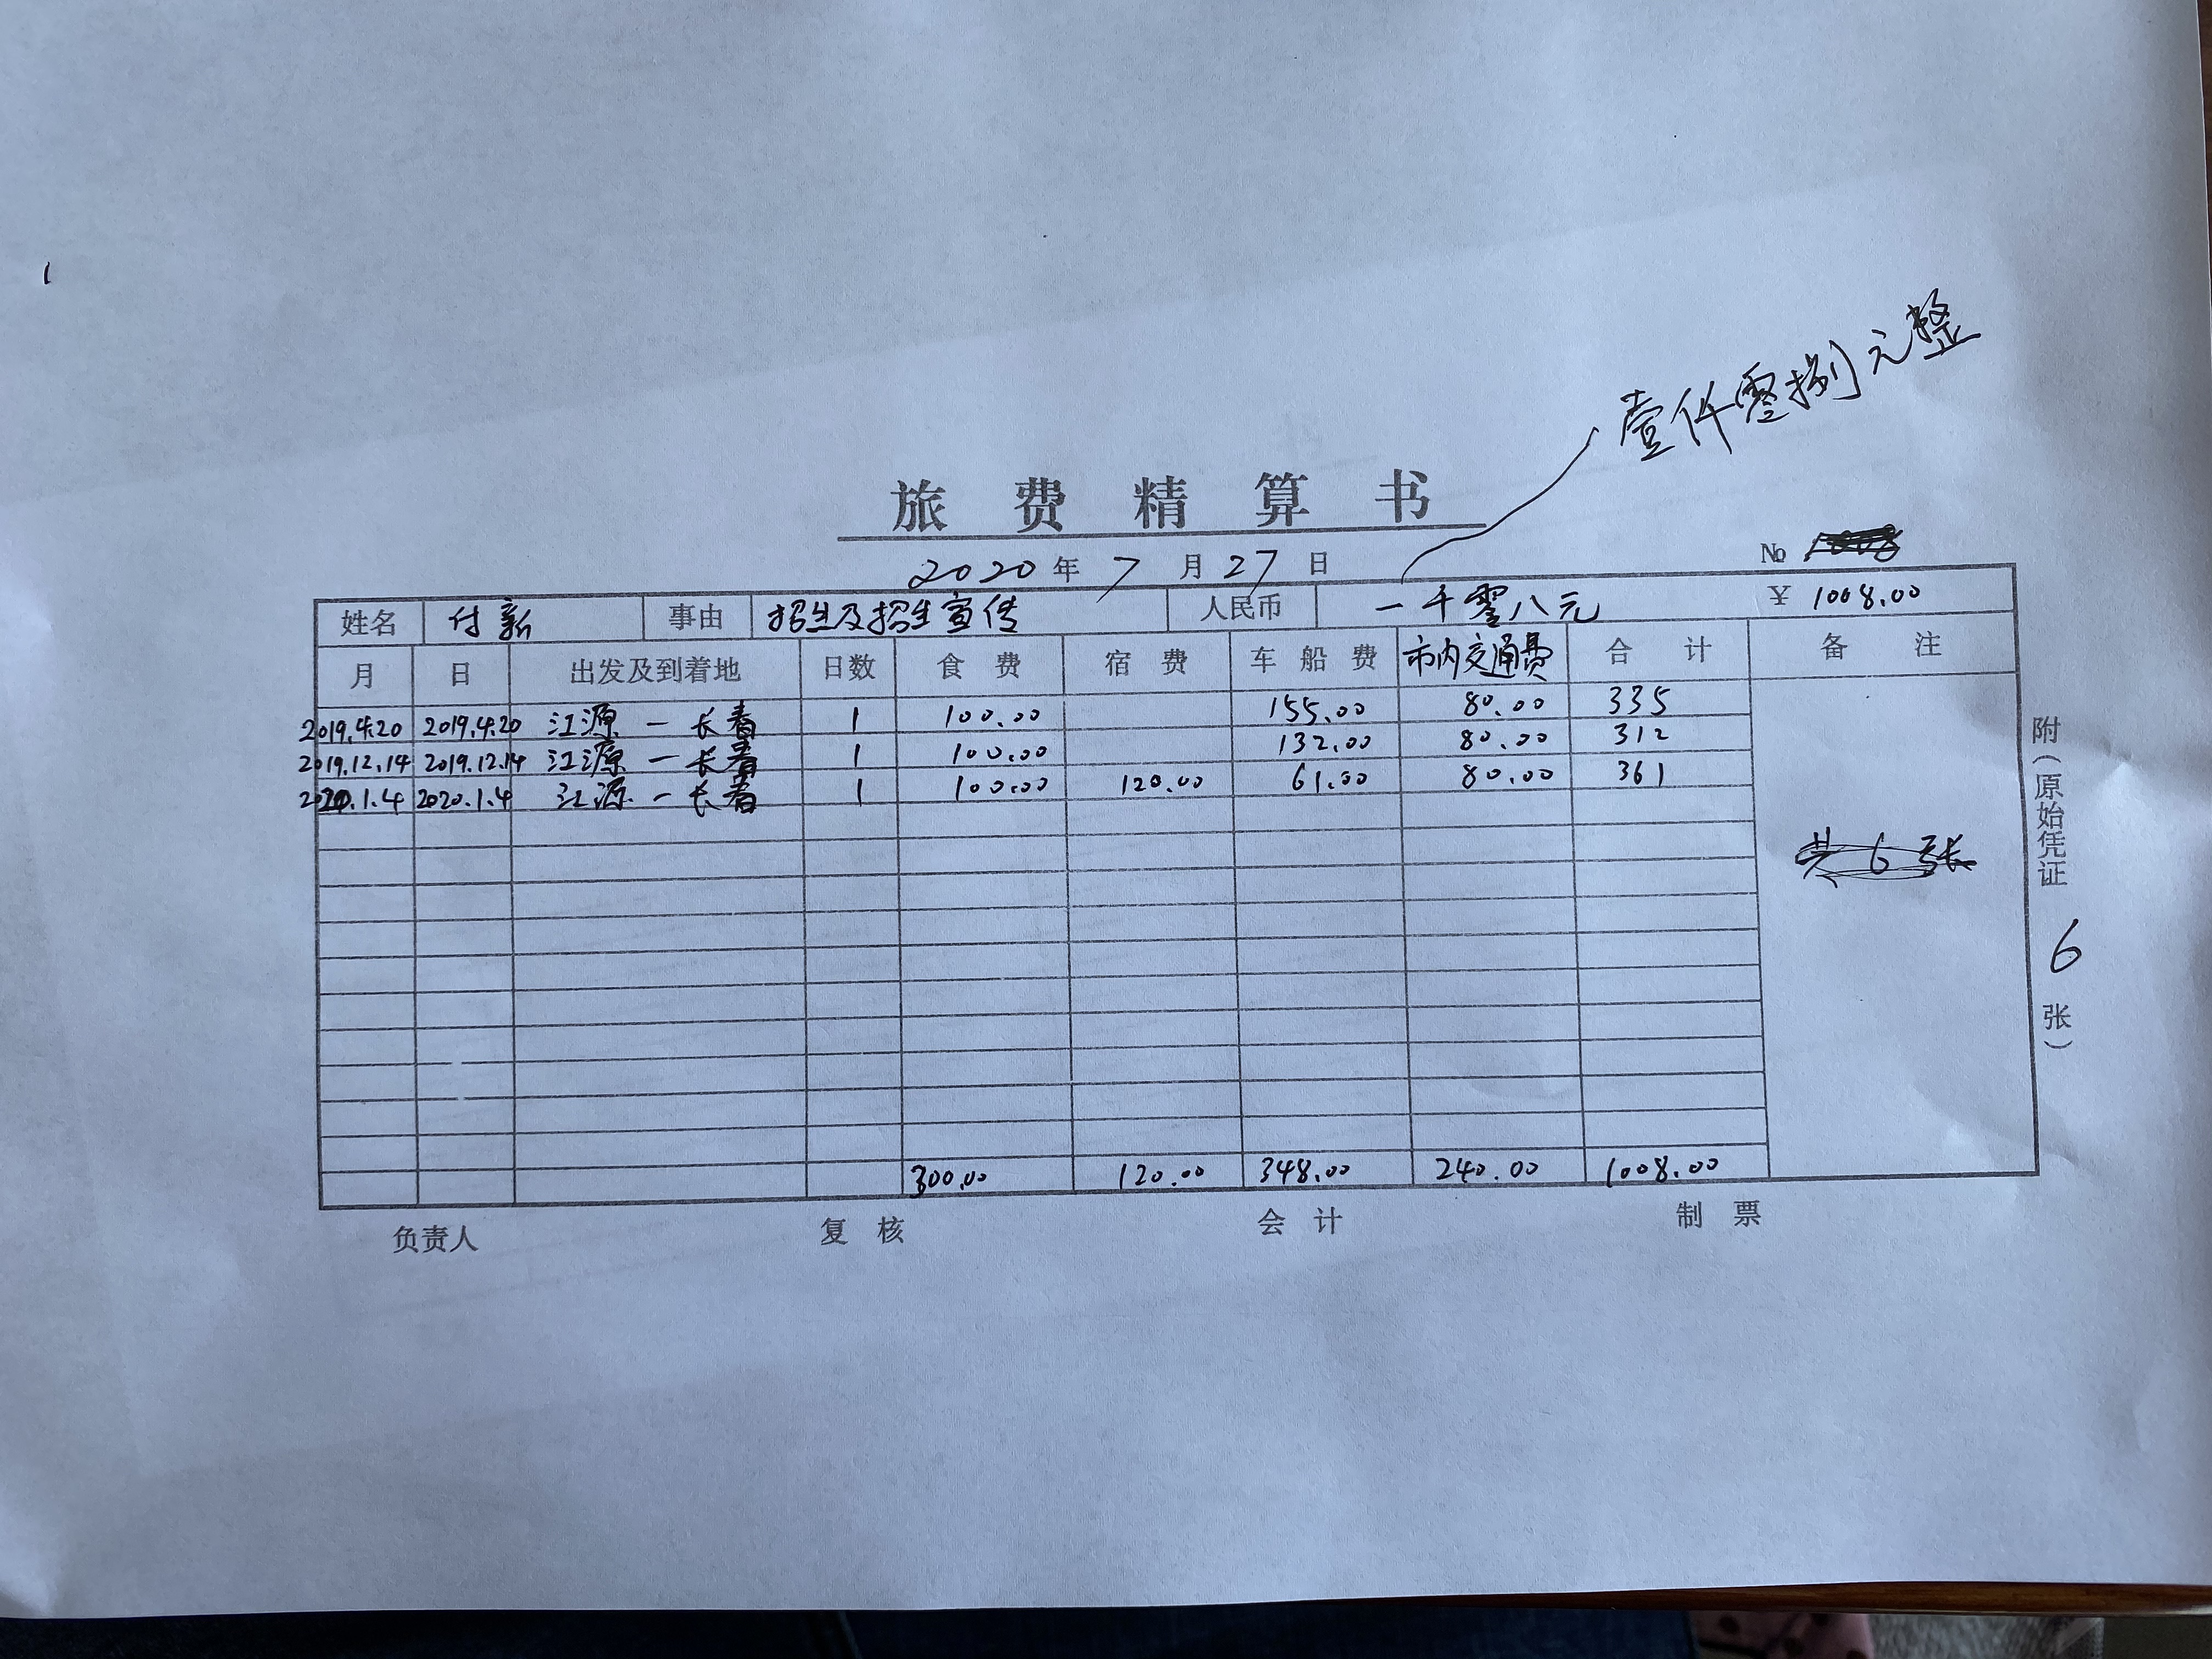 壹仟零捌元整
旅费精算书
2020年7月27日 No
姓名 付新 事由 招生及招生宣传 人民币 一千零八元 ¥ 1008.00
月 日 出发及到着地 日数 食费 宿费 车船费 市内交通费 合计 备注
2019.4.20 2019.4.20 江源－长春 1 100.00 155.00 80.00 335
2019.12.14 2019.12.14 江源－长春 1 100.00 132.00 80.00 312
2020.1.4 2020.1.4 江源－长春 1 100.00 120.00 61.00 80.00 361
共6张
300.00 120.00 348.00 240.00 1008.00
附（原始凭证 6 张）
负责人 复核 会计 制票